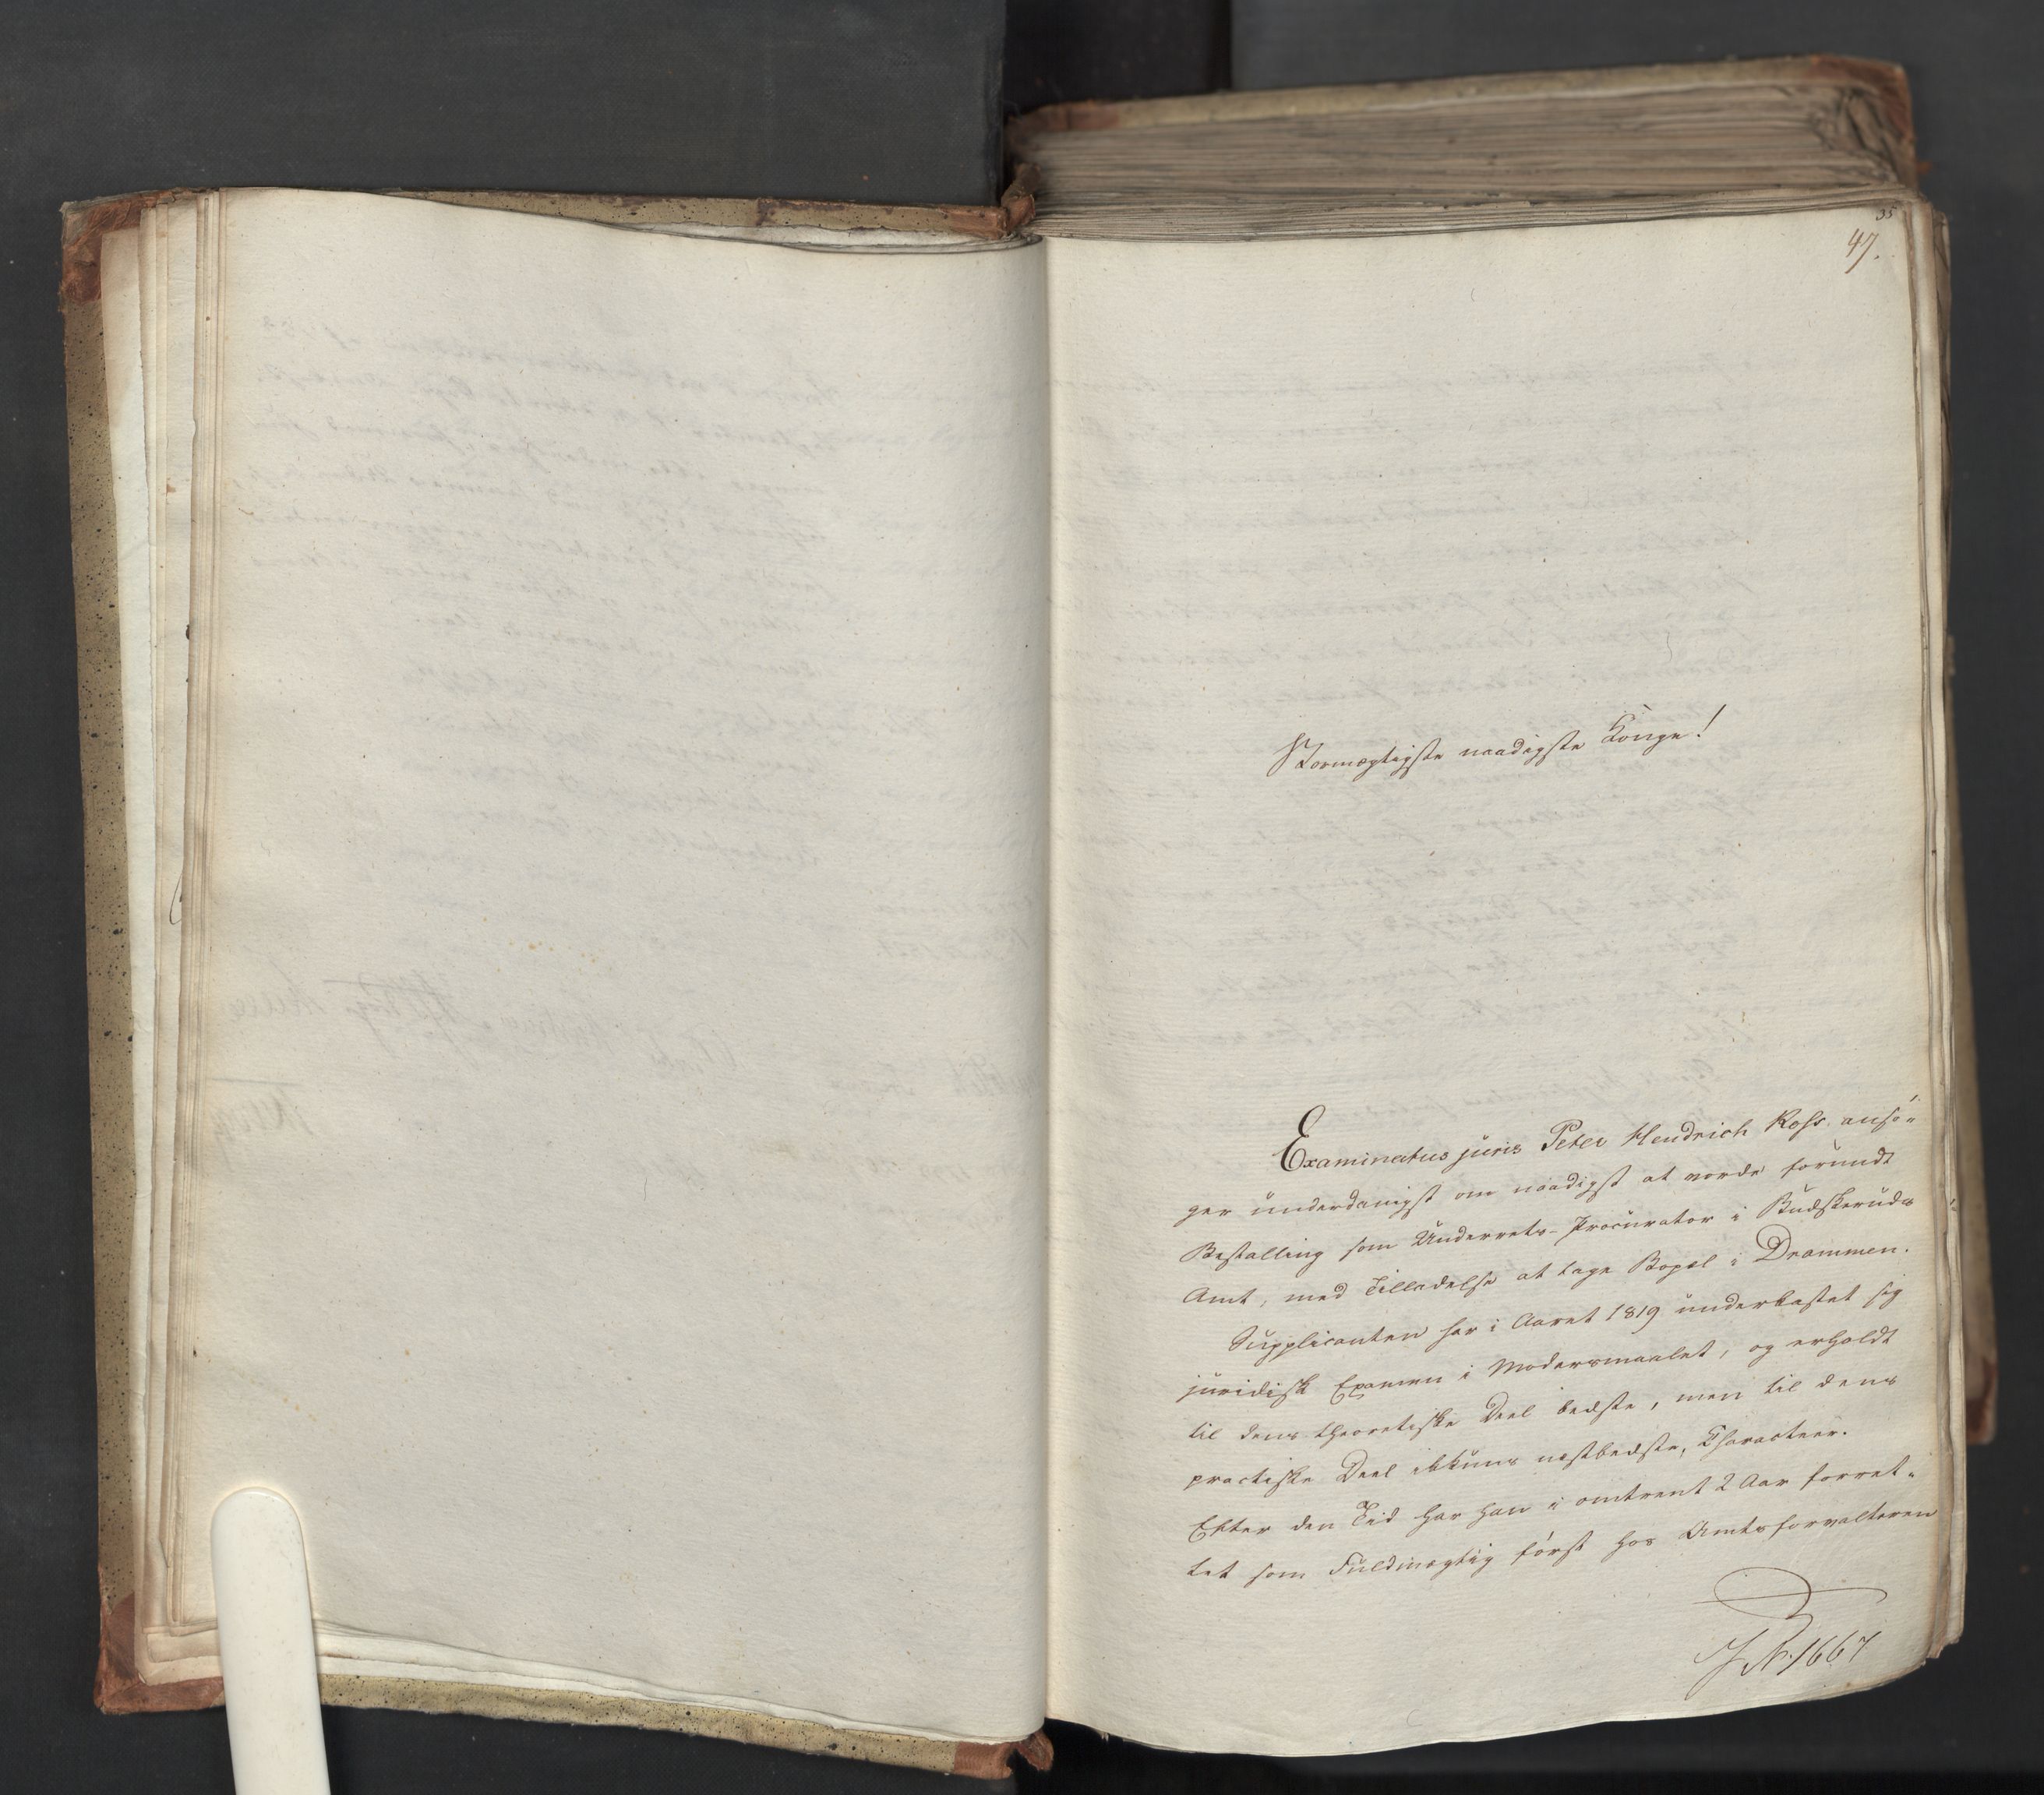 35
47.
Stormægtigste naadigste Konge!
Examinatus juris Peter Hendrich Ross ansø-
ger underdanigst om naadigst at vorde forundt
Bestalling som Underrets-Procurator i Budskeruds
Amt, med Tilladelse at tage Bopæl i Drammen.
Supplicanten har i Aaret 1819 underkastet sig
juridisk Examen i Modersmaalet, og erholdt
til dens theoretiske Deel bedste, men til dens
practiske Deel ikkuns næstbedste, Characteer.
Efter den Tid har han i omtrent 2 Aar forret-
tet som Fuldmægtig først hos Amtsforvalteren
J.N. 1667